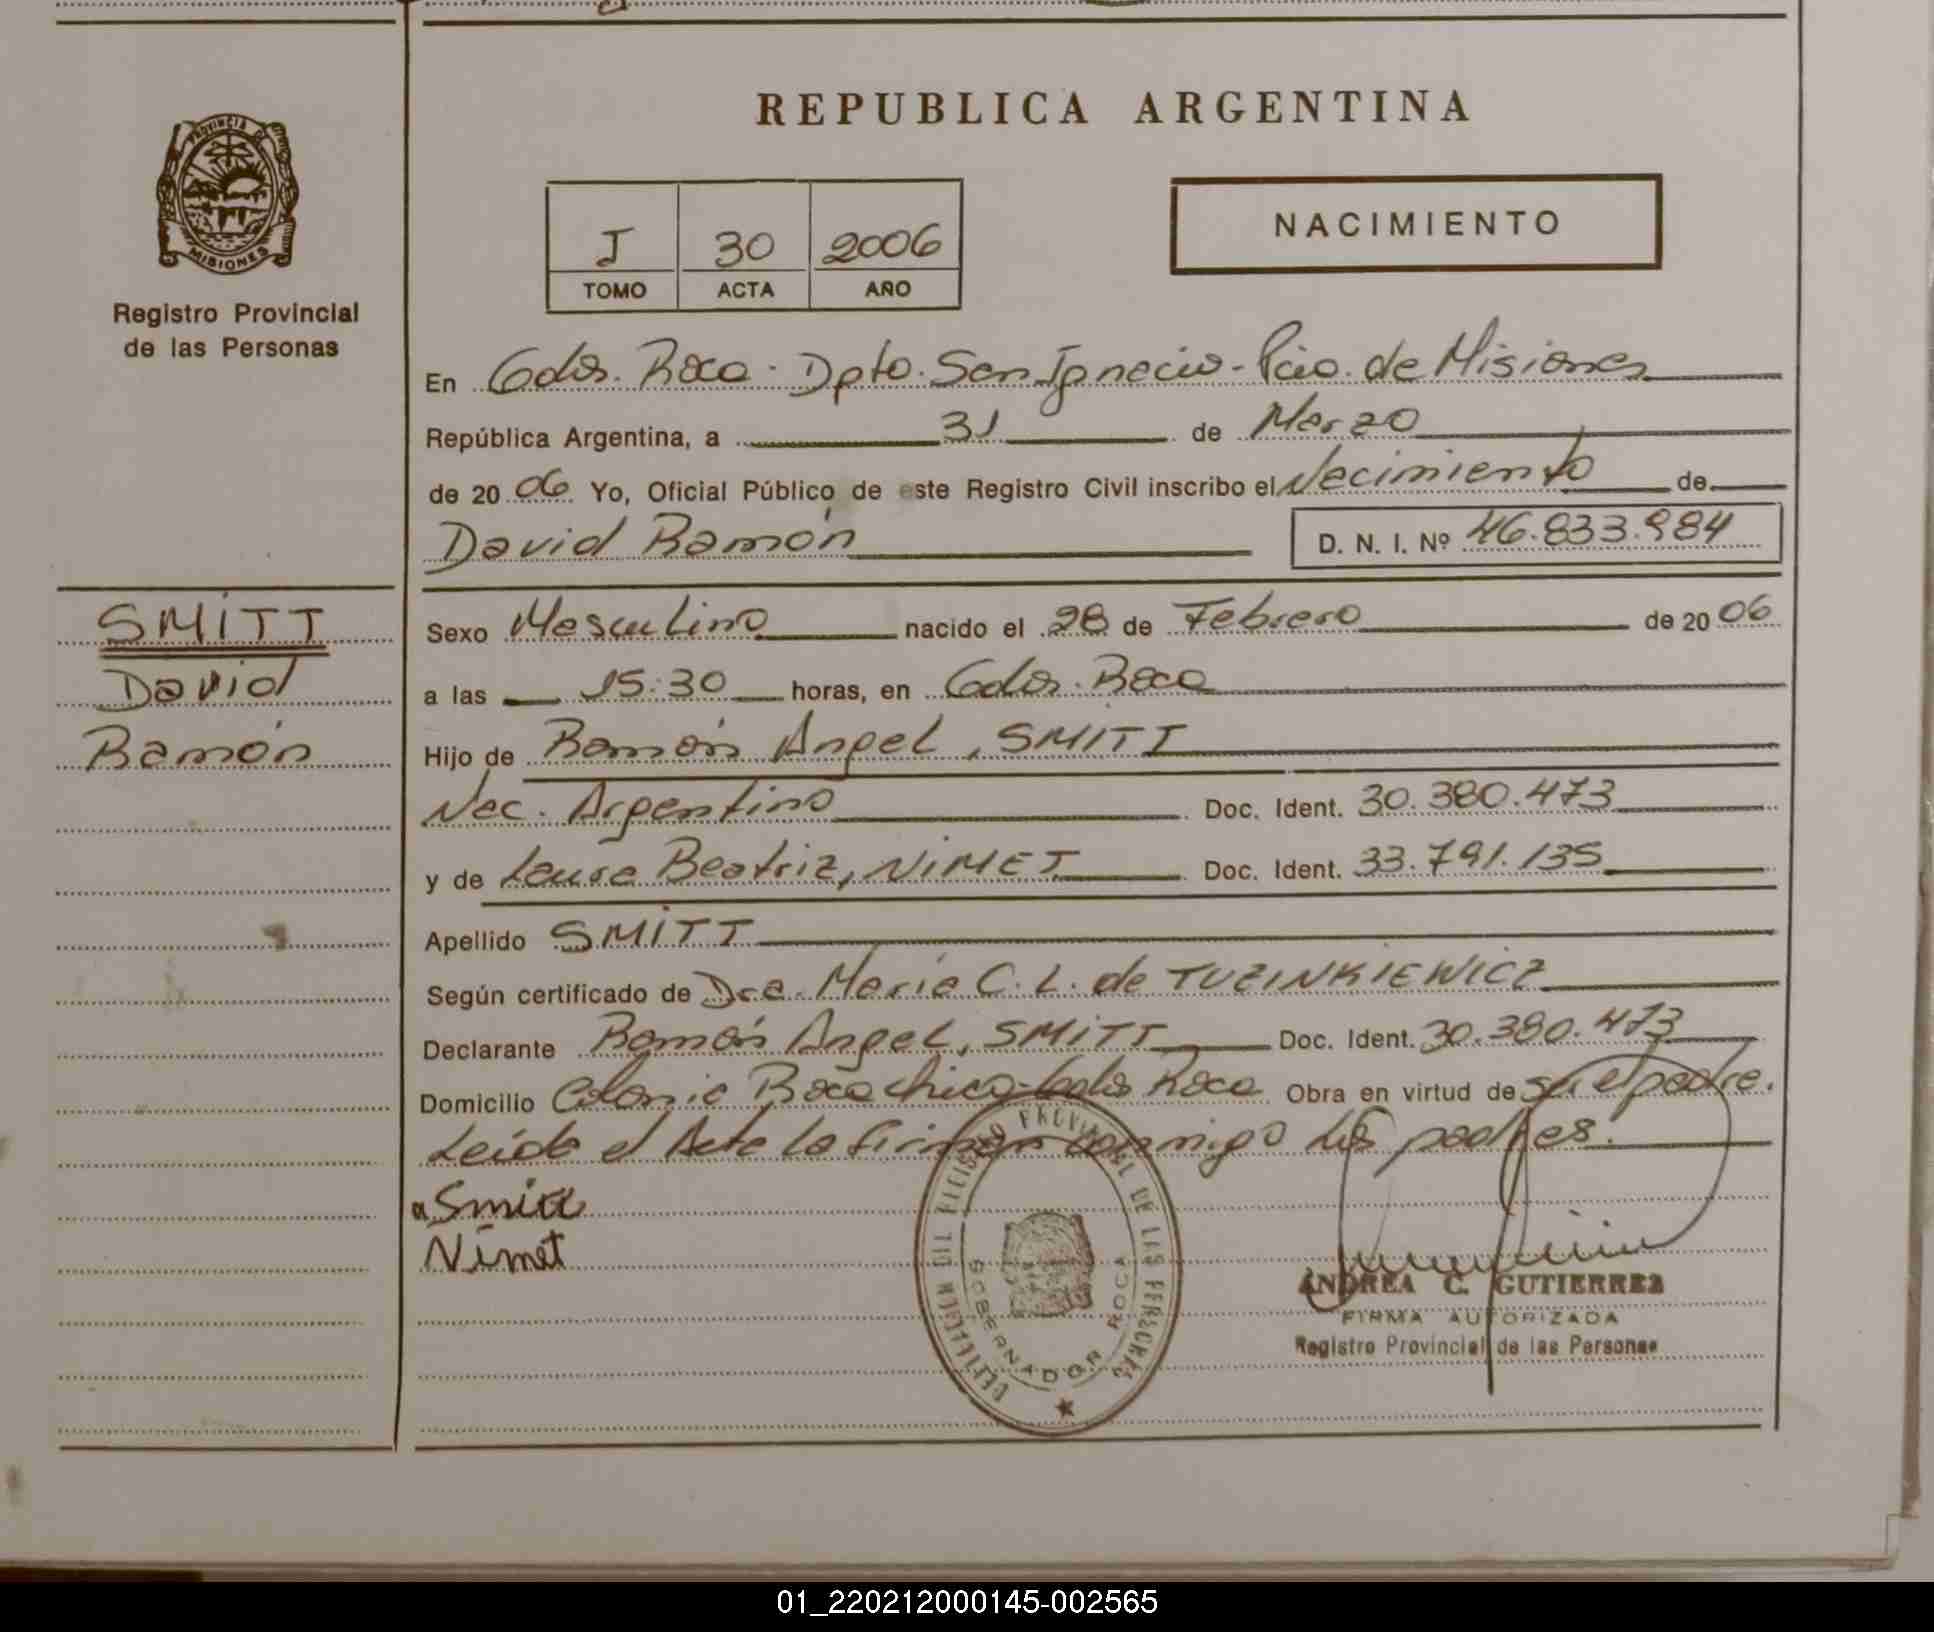 REPUBLICA ARGENTINA
PROVINCIA DE
MISIONES
Registro Provincial
de las Personas
J 30 2006
TOMO ACTA AÑO
NACIMIENTO
En Gdor. Roca - Dpto. San Ignacio - Pcia. de Misiones
República Argentina, a 31 de Marzo
de 2006 Yo, Oficial Público de este Registro Civil inscribo el Nacimiento de
David Ramón D. N. I. Nº 46.833.984
SMITT
David
Ramón
Sexo Masculino nacido el 28 de Febrero de 2006
a las 15:30 horas, en Gdor. Roca
Hijo de Ramón Angel, SMITT
Nac. Argentino Doc. Ident. 30.380.473
y de Laura Beatriz, NIMET Doc. Ident. 33.791.135
Apellido SMITT
Según certificado de Dra. María C. L. de TUZINKIEWICZ
Declarante Ramón Angel, SMITT Doc. Ident. 30.380.473
Domicilio Colonia Roca chica - Gdor Roca Obra en virtud de ser el padre.
Leída el Acta la firman conmigo los padres.
Smitt
Nimet
REGISTRO PROVINCIAL DE LAS PERSONAS
GOBERNADOR ROCA
ANDREA C. GUTIERREZ
FIRMA AUTORIZADA
Registro Provincial de las Personas
01_220212000145-002565